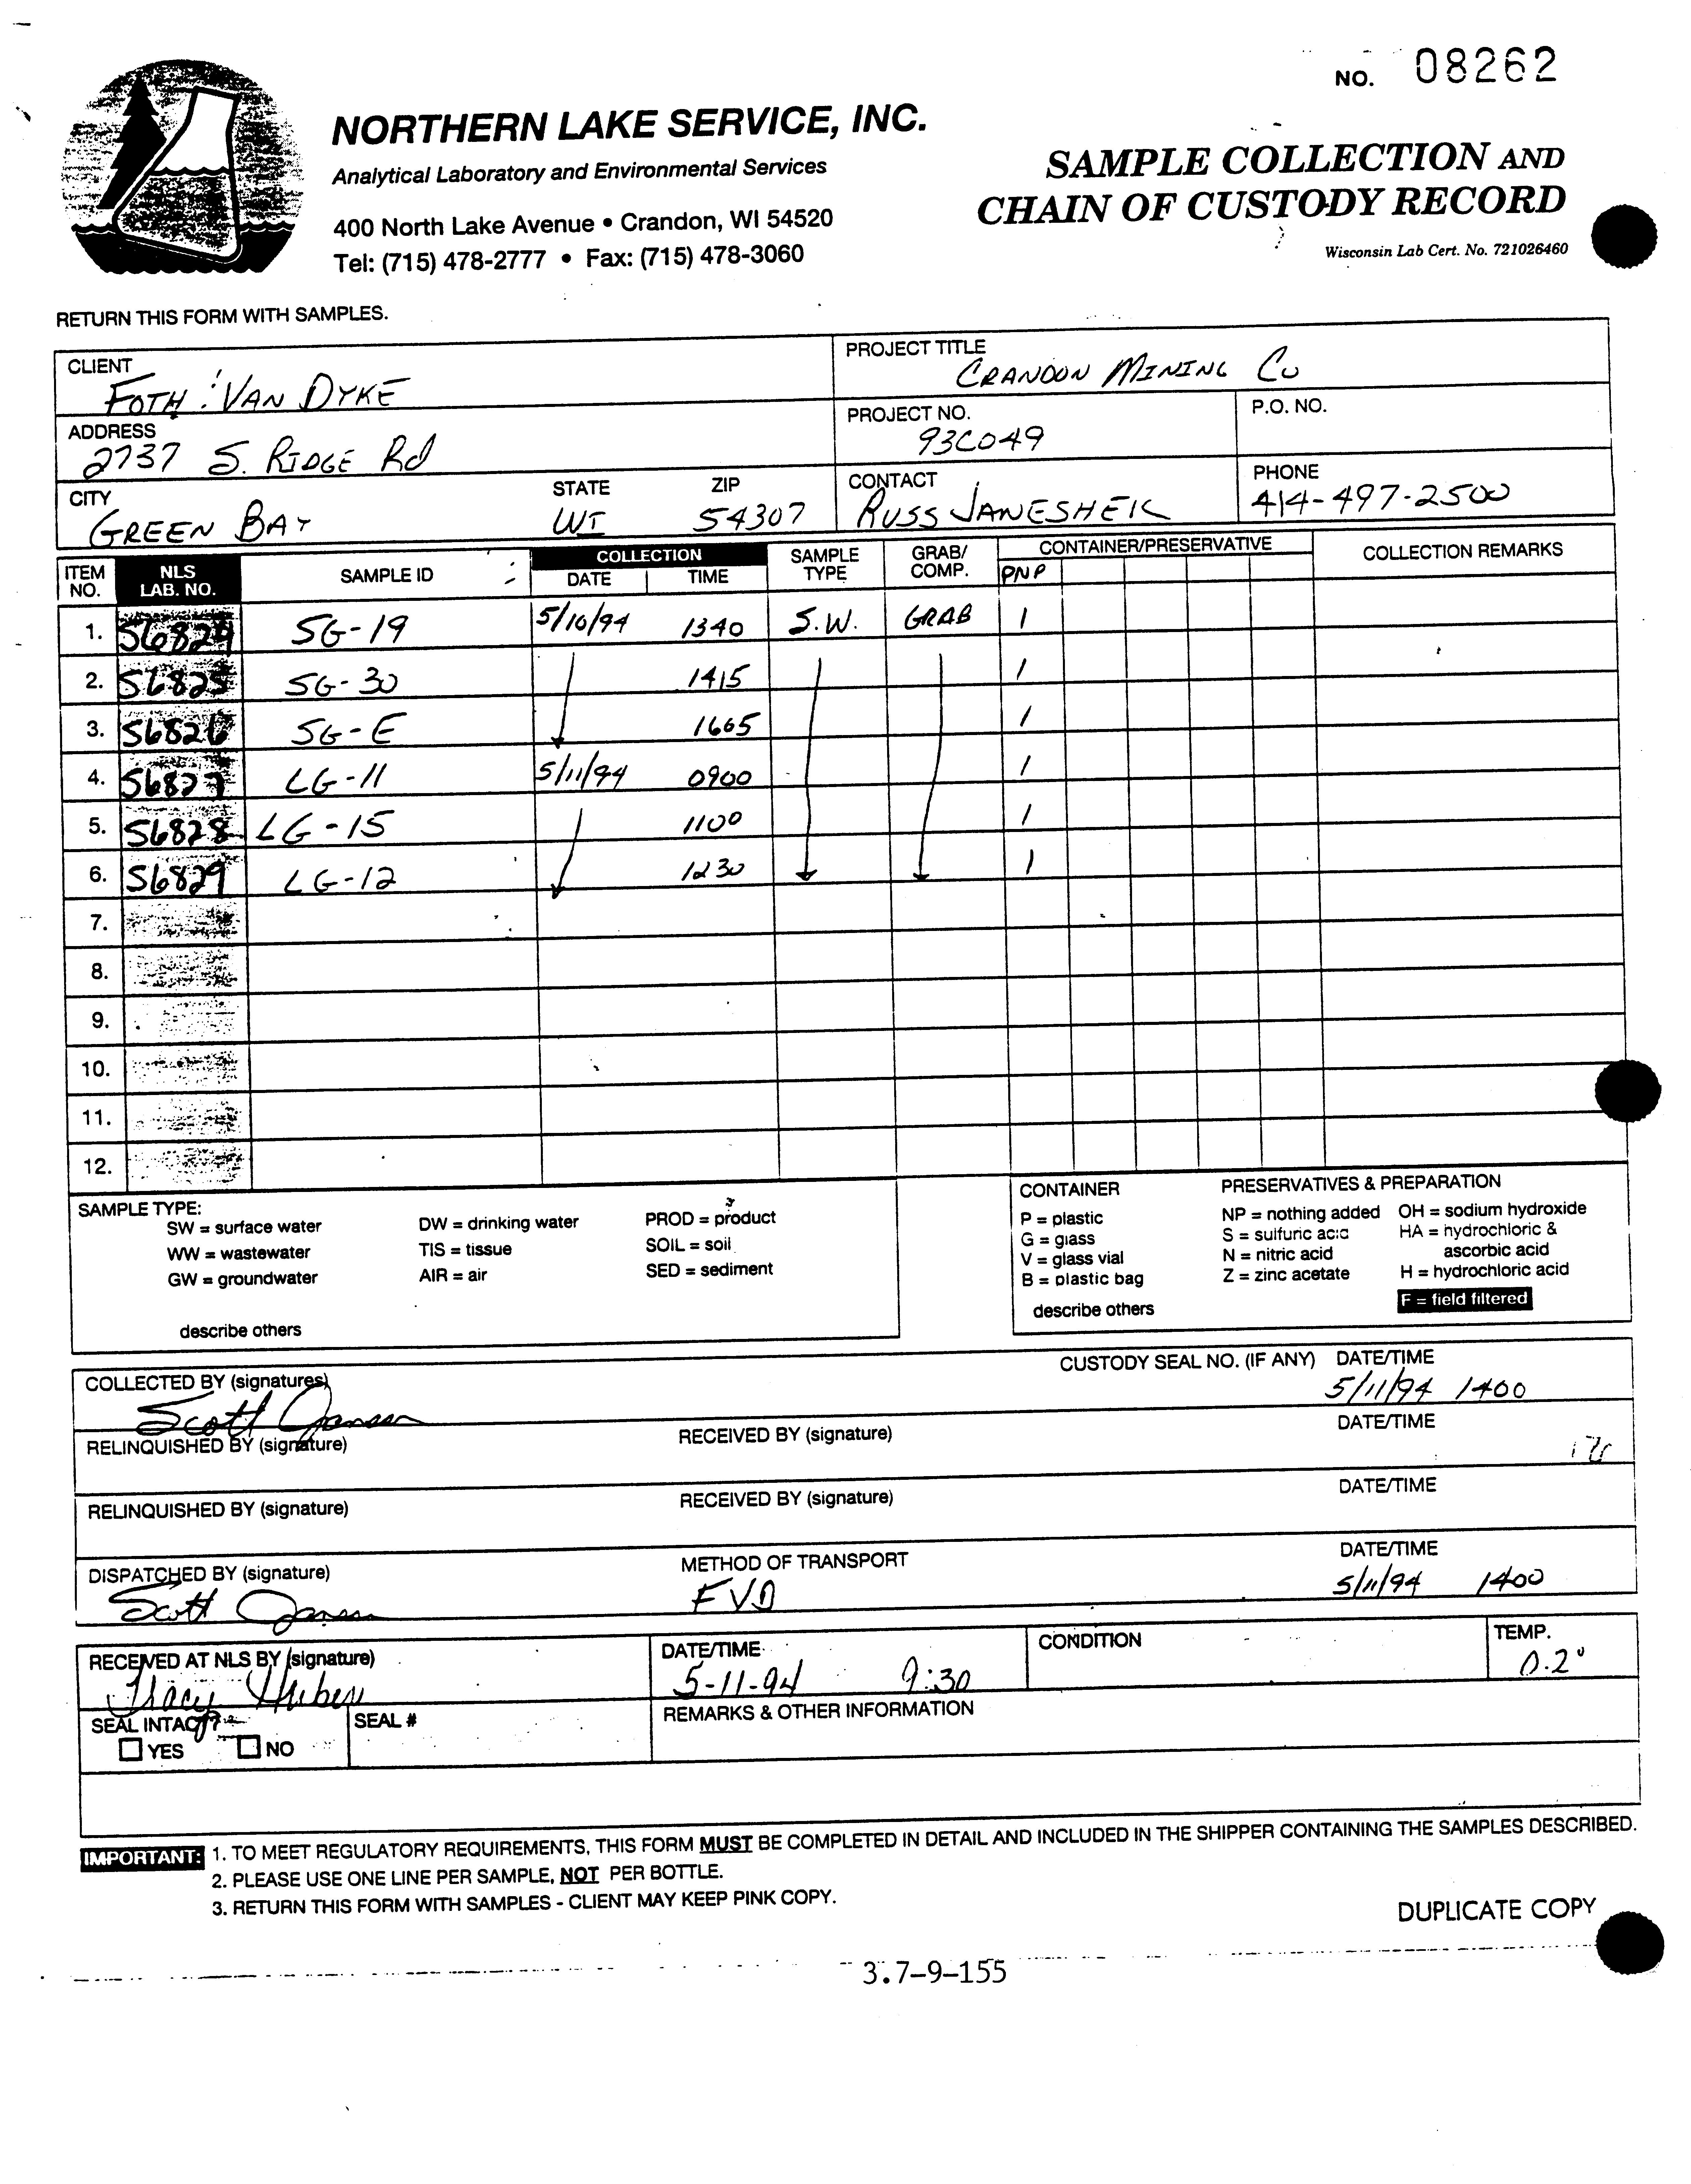 NO. 08262
NORTHERN LAKE SERVICE, INC.
Analytical Laboratory and Environmental Services
400 North Lake Avenue • Crandon, WI 54520
Tel: (715) 478-2777 • Fax: (715) 478-3060
SAMPLE COLLECTION AND
CHAIN OF CUSTODY RECORD
Wisconsin Lab Cert. No. 721026460
RETURN THIS FORM WITH SAMPLES.
CLIENT
FOTH : VAN DYKE
PROJECT TITLE
CRANDON MINING CO
ADDRESS
2737 S. RIDGE Rd
PROJECT NO.
93C049
P.O. NO.
CITY STATE ZIP
GREEN BAY WI 54307
CONTACT
RUSS JANESHEK
PHONE
414-497-2500
ITEM NO. NLS LAB. NO. SAMPLE ID COLLECTION DATE TIME SAMPLE TYPE GRAB/ COMP. CONTAINER/PRESERVATIVE COLLECTION REMARKS
PNP
1. 56824 SG-19 5/10/94 1340 S.W. GRAB 1
2. 56825 SG-30 1415 1
3. 56826 SG-E 1605 1
4. 56827 LG-11 5/11/94 0900 1
5. 56828 LG-15 1100 1
6. 56829 LG-12 1230 1
7.
8.
9.
10.
11.
12.
SAMPLE TYPE:
SW = surface water DW = drinking water PROD = product
WW = wastewater TIS = tissue SOIL = soil
GW = groundwater AIR = air SED = sediment
describe others
CONTAINER PRESERVATIVES & PREPARATION
P = plastic NP = nothing added OH = sodium hydroxide
G = glass S = sulfuric acid HA = hydrochloric &
V = glass vial N = nitric acid ascorbic acid
B = plastic bag Z = zinc acetate H = hydrochloric acid
describe others F = field filtered
COLLECTED BY (signatures) CUSTODY SEAL NO. (IF ANY) DATE/TIME
Scott Jansen 5/11/94 1400
RELINQUISHED BY (signature) RECEIVED BY (signature) DATE/TIME
RELINQUISHED BY (signature) RECEIVED BY (signature) DATE/TIME
DISPATCHED BY (signature) METHOD OF TRANSPORT DATE/TIME
Scott Jansen FVD 5/11/94 1400
RECEIVED AT NLS BY (signature) DATE/TIME CONDITION TEMP.
Tracy 5-11-94 9:30 0.2°
SEAL INTACT? SEAL # REMARKS & OTHER INFORMATION
YES NO
IMPORTANT: 1. TO MEET REGULATORY REQUIREMENTS, THIS FORM MUST BE COMPLETED IN DETAIL AND INCLUDED IN THE SHIPPER CONTAINING THE SAMPLES DESCRIBED.
2. PLEASE USE ONE LINE PER SAMPLE, NOT PER BOTTLE.
3. RETURN THIS FORM WITH SAMPLES - CLIENT MAY KEEP PINK COPY.
DUPLICATE COPY
3.7-9-155